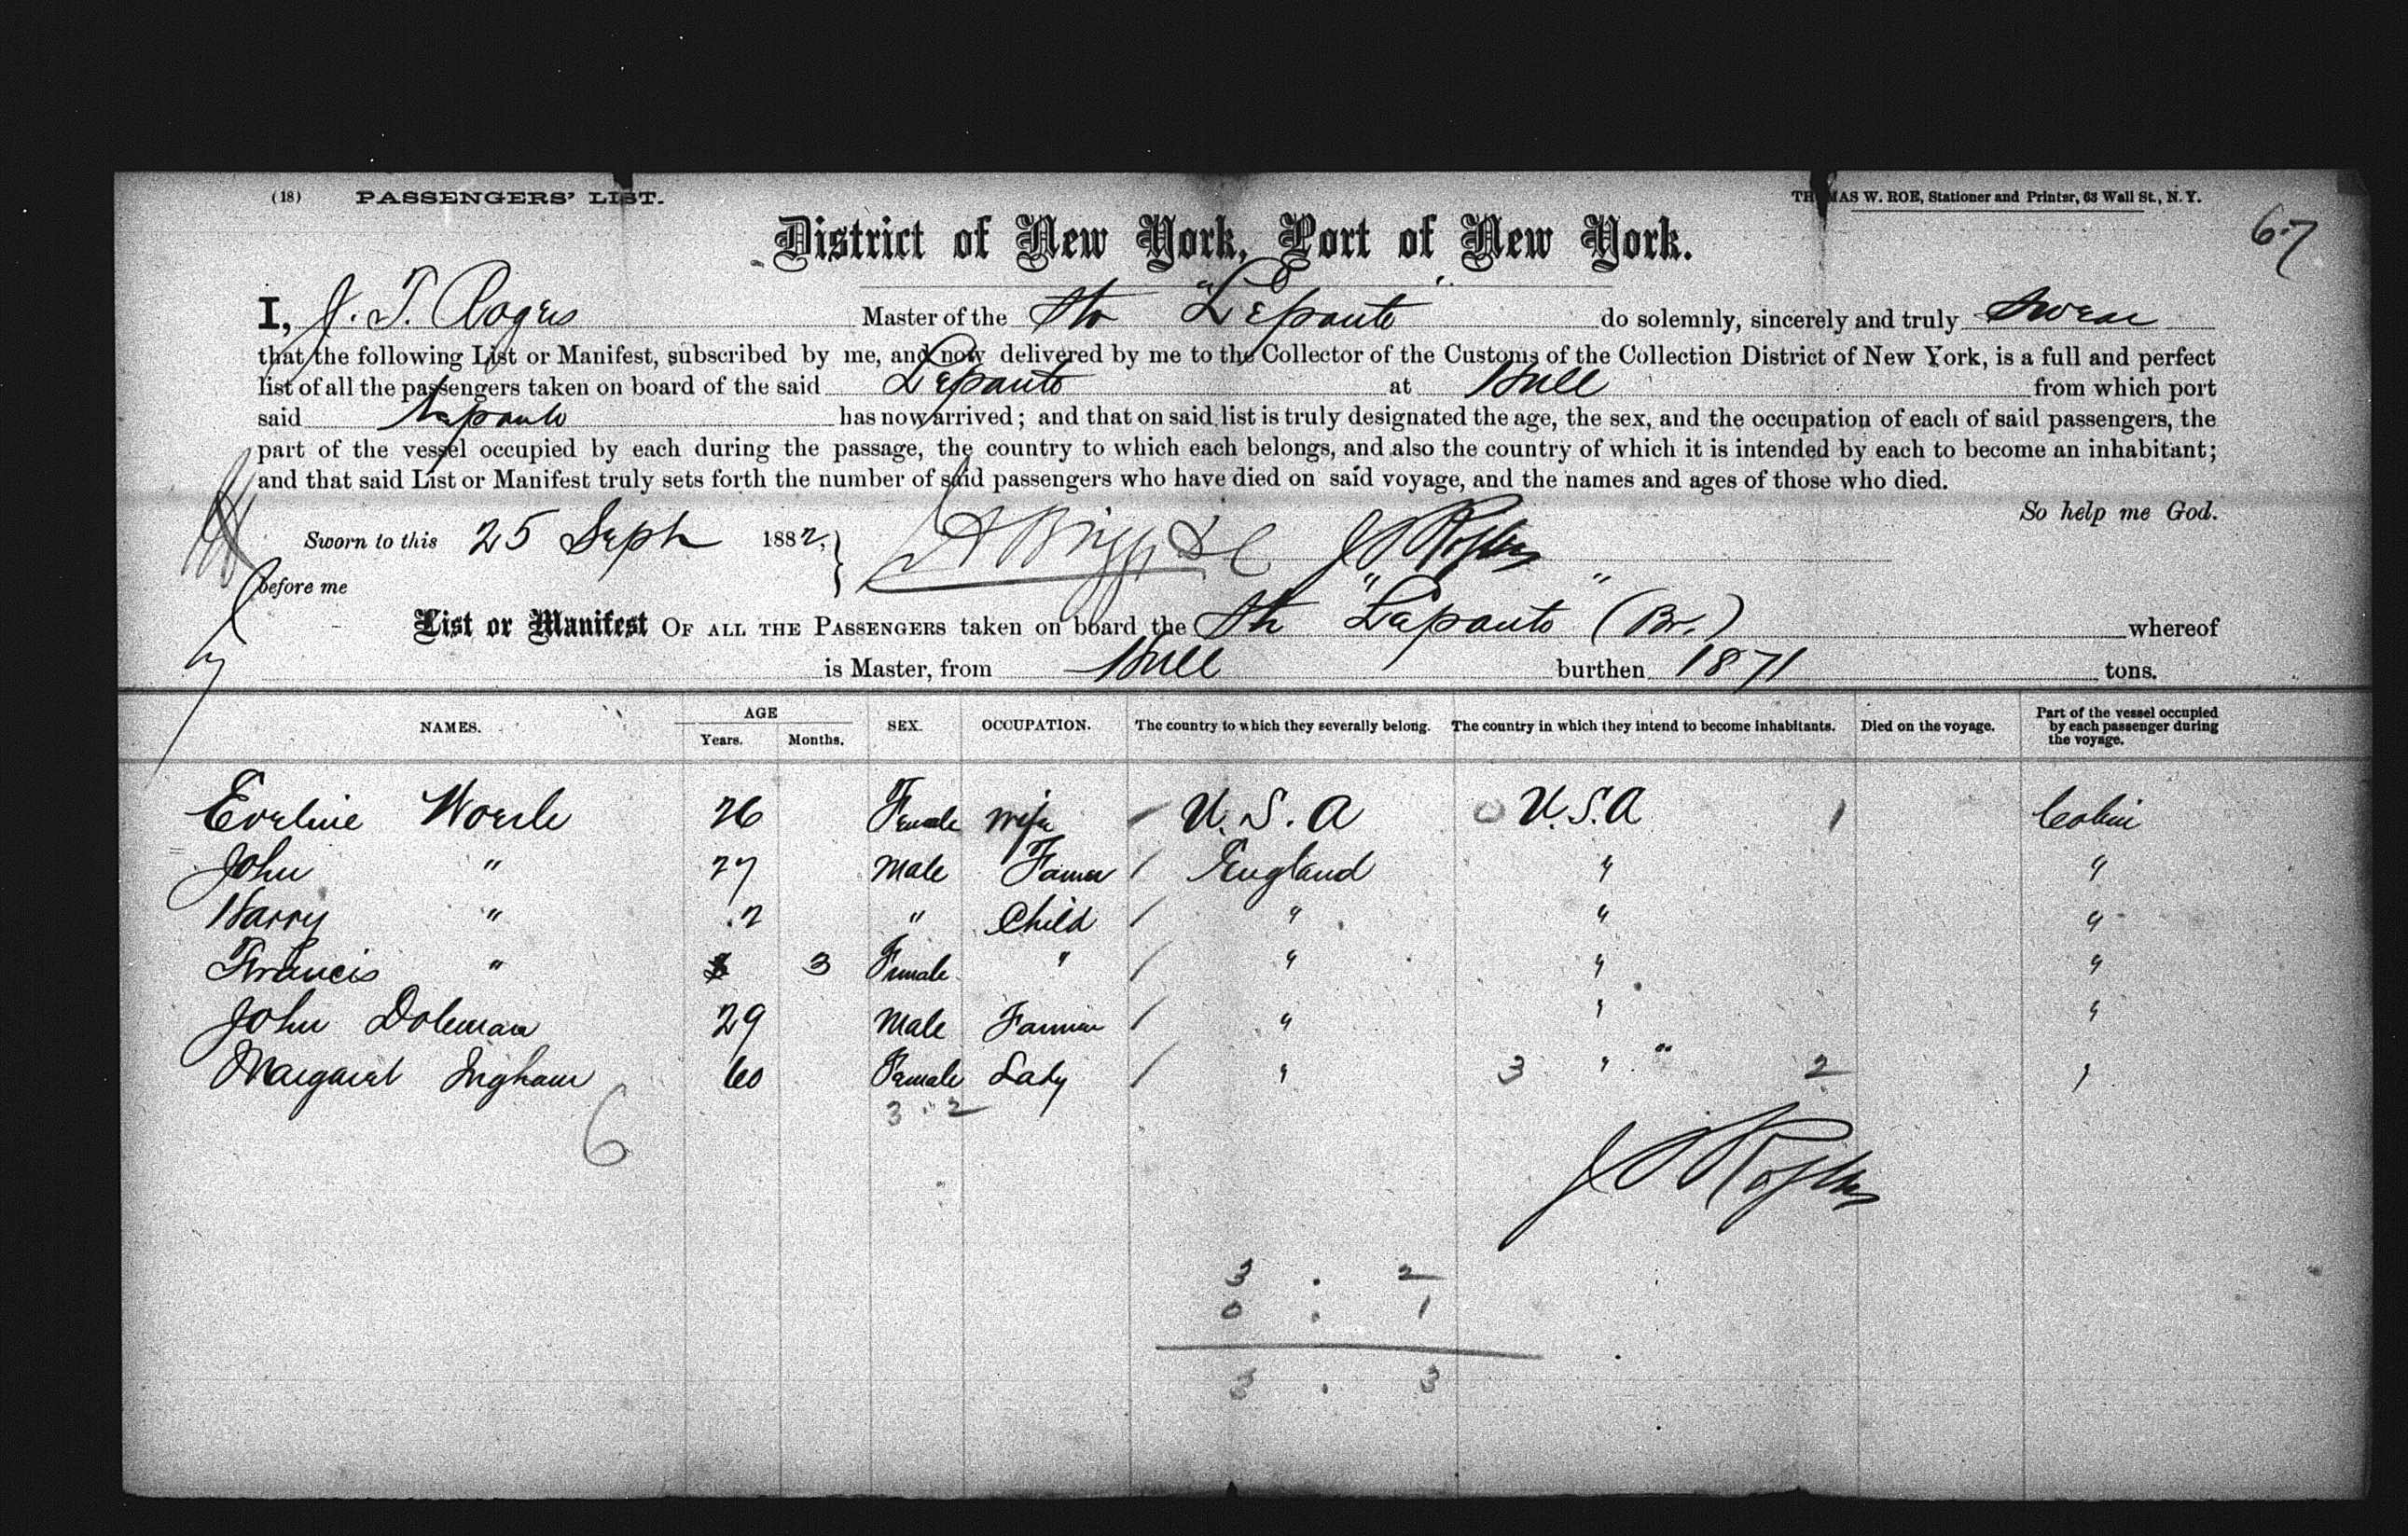 (18) PASSENGERS' LIST. THOMAS W. ROE, Stationer and Printer, 63 Wall St., N. Y.
67
District of New York, Port of New York.
I, J. T. Rogers Master of the Str "Lepanto" do solemnly, sincerely and truly swear
that the following List or Manifest, subscribed by me, and now delivered by me to the Collector of the Customs of the Collection District of New York, is a full and perfect
list of all the passengers taken on board of the said Lepanto at Hull from which port
said Lepanto has now arrived; and that on said list is truly designated the age, the sex, and the occupation of each of said passengers, the
part of the vessel occupied by each during the passage, the country to which each belongs, and also the country of which it is intended by each to become an inhabitant;
and that said List or Manifest truly sets forth the number of said passengers who have died on said voyage, and the names and ages of those who died.
So help me God.
Sworn to this 25 Sept 1882, Briggs D C J T Rogers
before me
List or Manifest OF ALL THE PASSENGERS taken on board the Str "Lepanto" (Br.) whereof
is Master, from Hull burthen 1871 tons.
NAMES. AGE Years. Months. SEX. OCCUPATION. The country to which they severally belong. The country in which they intend to become inhabitants. Died on the voyage. Part of the vessel occupied by each passenger during the voyage.
Eveline 26 Female wife / U.S.A 0 U.S.A 1 Cabin
John " 27 Male Farmer / England " "
Harry " 2 " Child / " " "
Francis " 3 Female " / " " "
John Doleman 29 Male Farmer / " " "
Margaret Ingham 60 Female Lady / " 3 " 2 "
3 . 2
6
J T Rogers
3 . 2
0 . 1
3 . 3